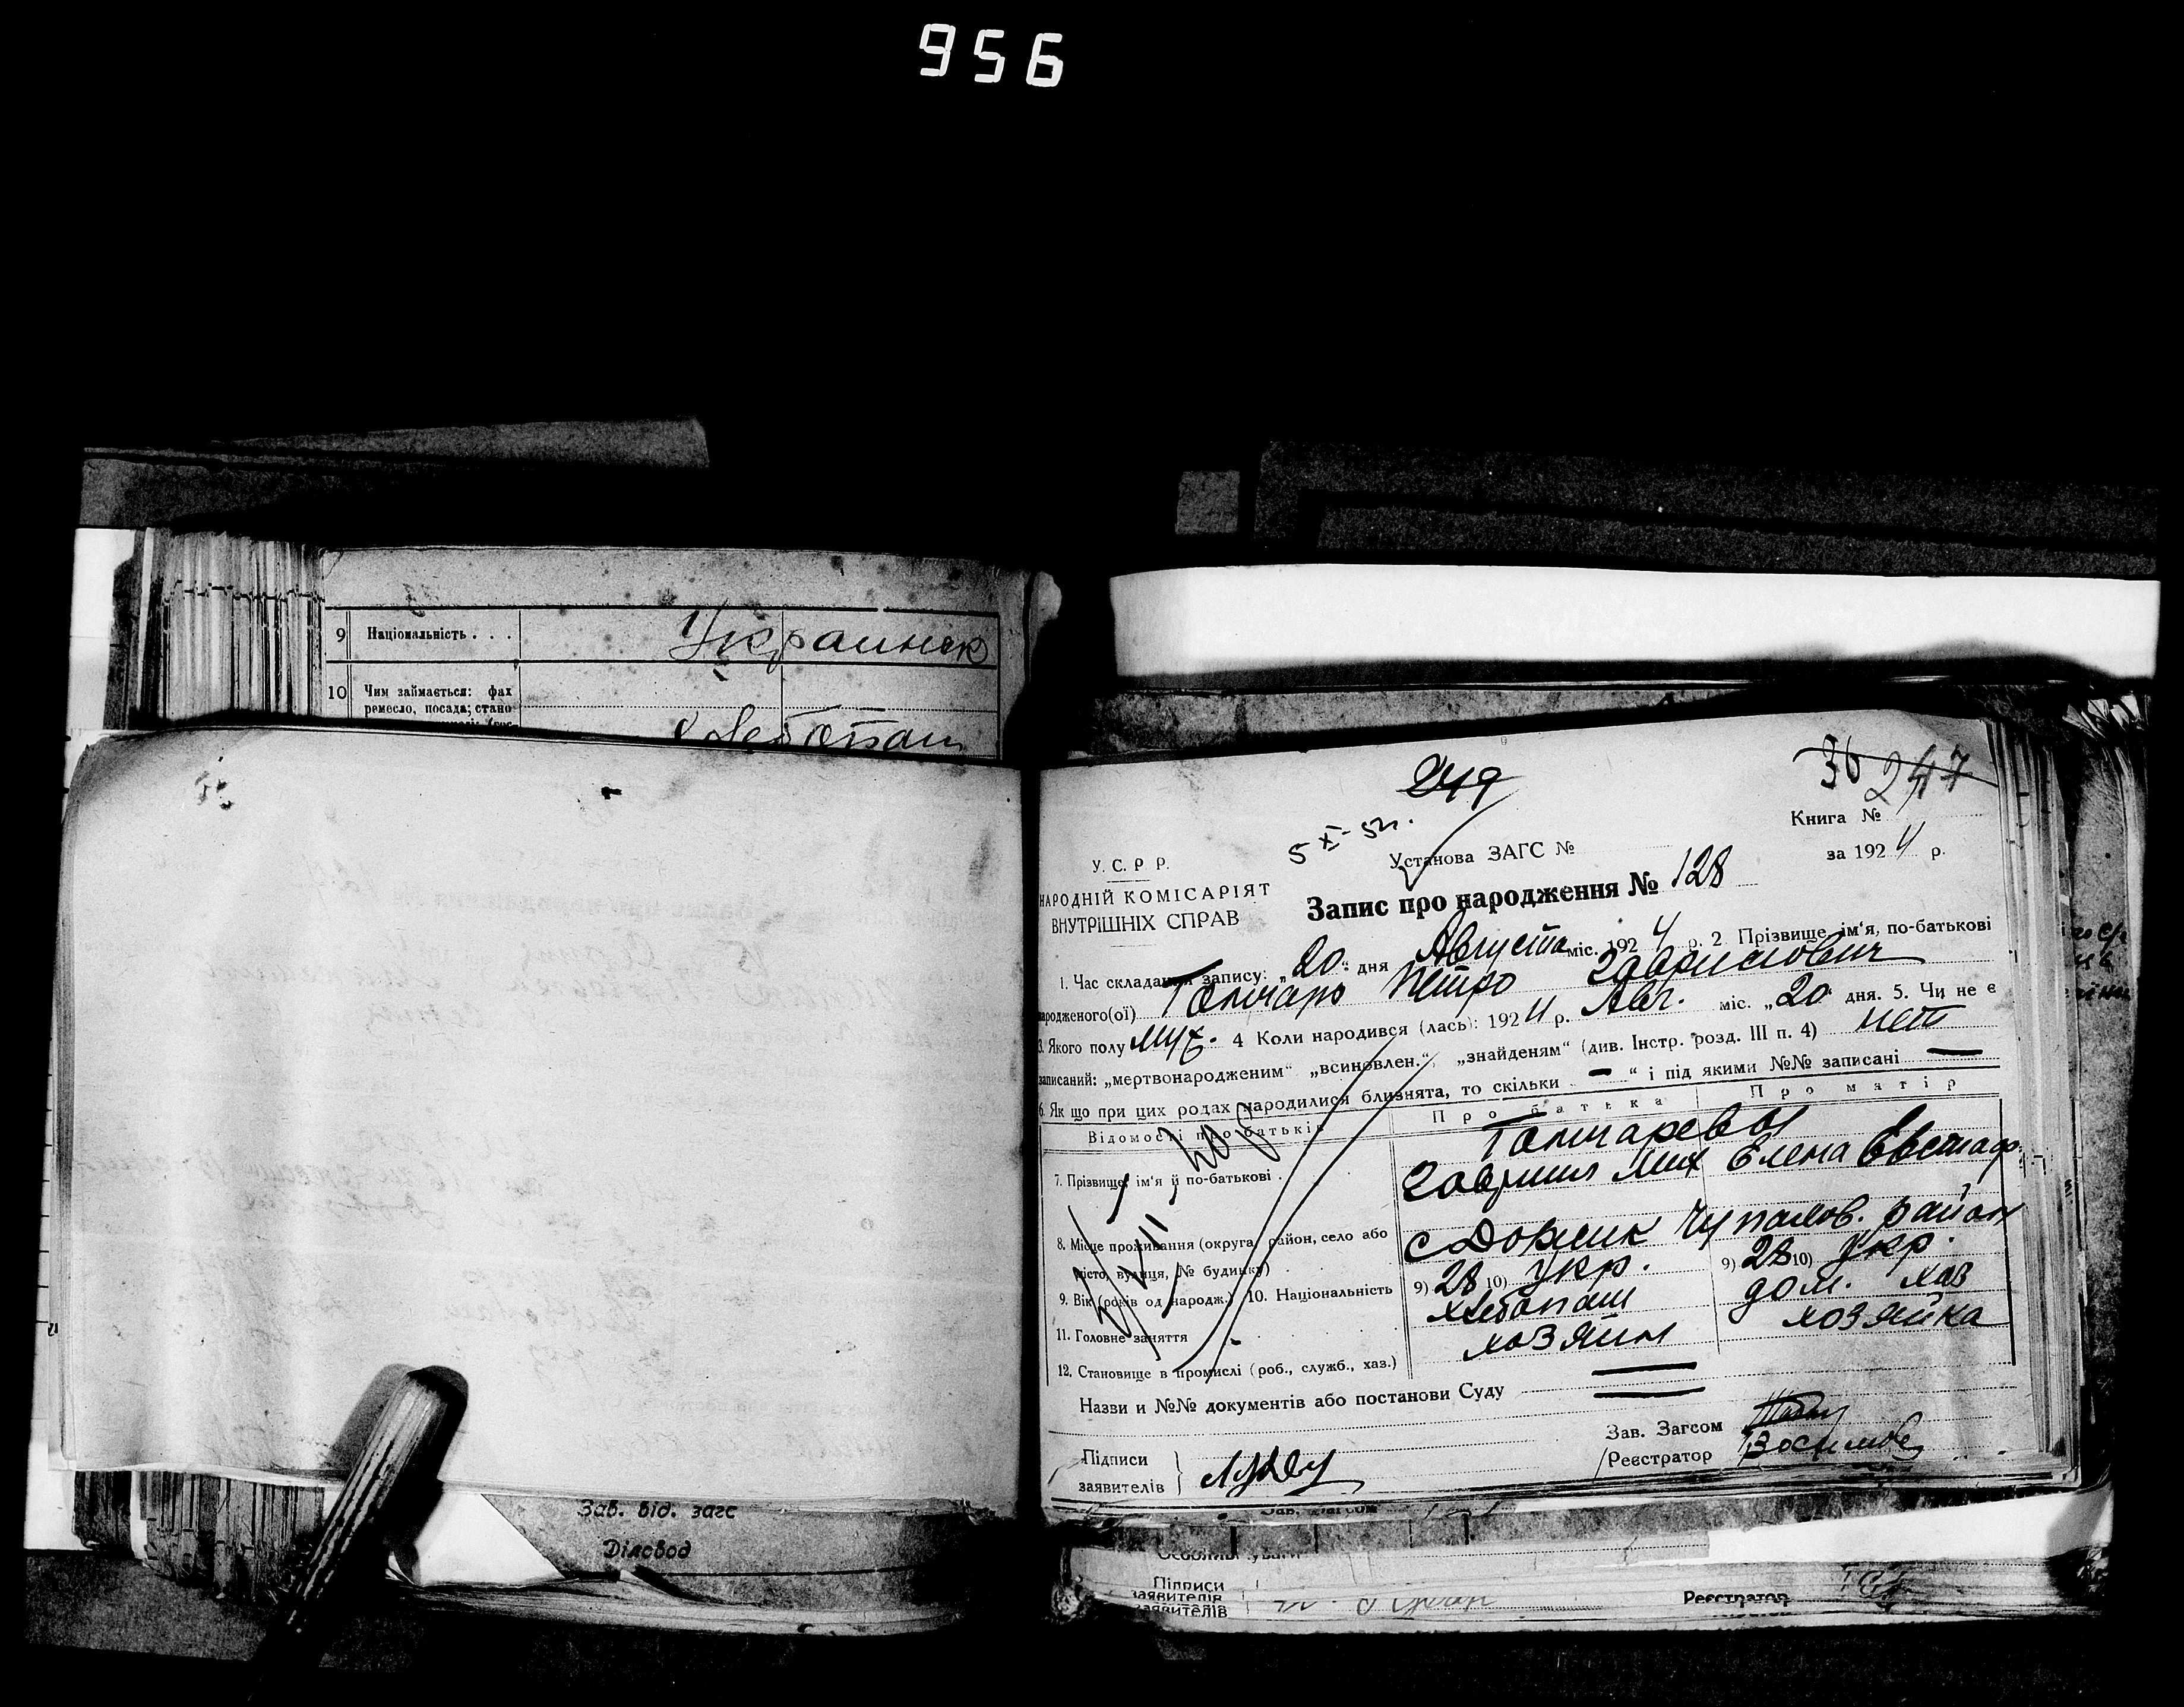 956
9 Національність . . . Украинск
10 Чим займається: фах
ремесло, посада; стано
Хлебопаш
Зав. від. загс
Діловод
249
36 247
5 XI-52г.
Книга №
У. С. Р Р.
Установа ЗАГС №
за 1924 р.
НАРОДНІЙ КОМІСАРІЯТ
ВНУТРІШНІХ СПРАВ
Запис про народження № 128
1. Час складання запису: „20“ дня Августа міс. 1924 р. 2 Прізвище ім‘я, по-батькові
народженого(ої) Гончарь Петро Гаврилович
3. Якого полу муж. 4 Коли народився (лась): 1924 р. Авг. міс. „20 дня. 5. Чи не є
записаний: „мертвонародженим“ „всиновлен.“, „знайденям“ (див. Інстр. розд. III п. 4) нет
6. Як що при цих родах народилися близнята, то скільки — “ і під якими №№ записані —
Відомості про батьків Про батька Про матір
Гончаревы
7. Прізвище, ім‘я й по-батькові . Гавриил Мих Елена Евстаф.
8. Місце проживання (округа, район, село або с Должик Чупалов. район
місто, вулиця, № будинку)
9. Вік (років од народж.) 10. Національність 9) 28 10) Укр. 9) 28 10) Укр.
11. Головне заняття хлебопаш дом. хоз
12. Становище в промислі (роб., служб., хаз.) хозяин хозяйка
Назви и №№ документів або постанови Суду
Зав. Загсом
Підписи
заявителів
Реєстратор
Підписи
заявителів
Реєстратор